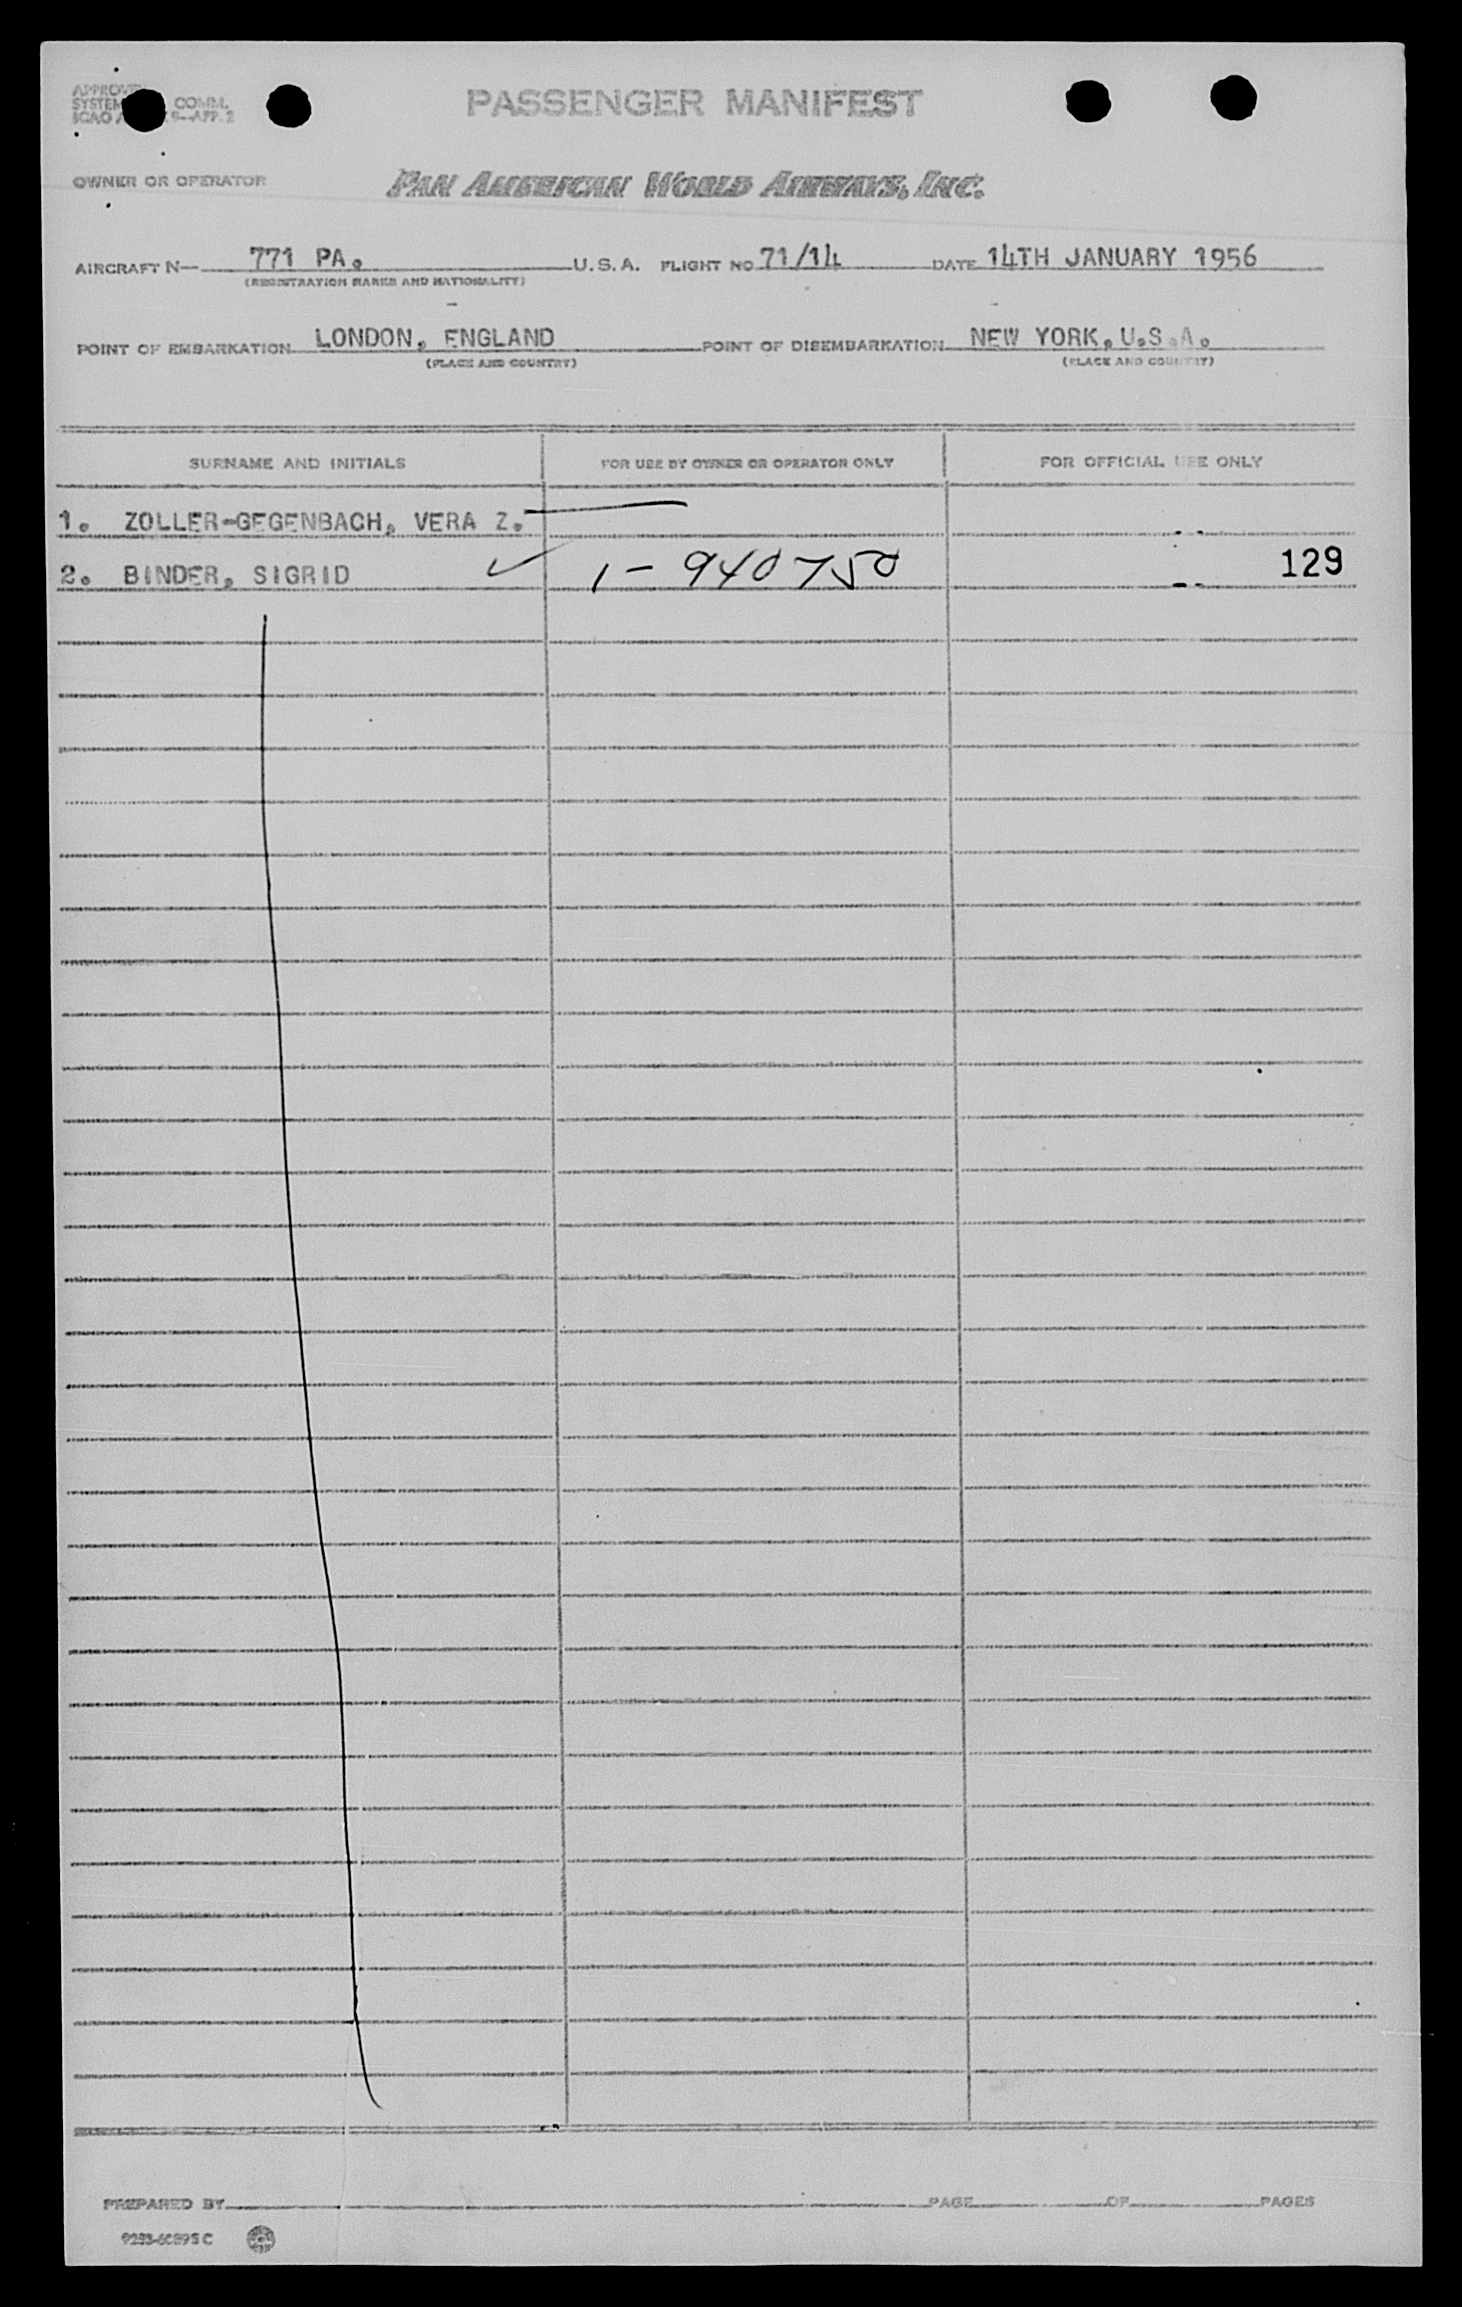 PASSENGER MANIFEST
OWNER OR OPERATOR PAN AMERICAN WORLD AIRWAYS, INC.
AIRCRAFT N— 771 PA. U.S.A. FLIGHT NO 71/14 DATE 14TH JANUARY 1956
(REGISTRATION MARKS AND NATIONALITY)
POINT OF EMBARKATION LONDON, ENGLAND POINT OF DISEMBARKATION NEW YORK, U.S.A.
(PLACE AND COUNTRY) (PLACE AND COUNTRY)
SURNAME AND INITIALS FOR USE BY OWNER OR OPERATOR ONLY FOR OFFICIAL USE ONLY
1. ZOLLER-GEGENBACH, VERA Z.
2. BINDER, SIGRID ✓ 1 - 940750 129
PREPARED BY PAGE OF PAGES